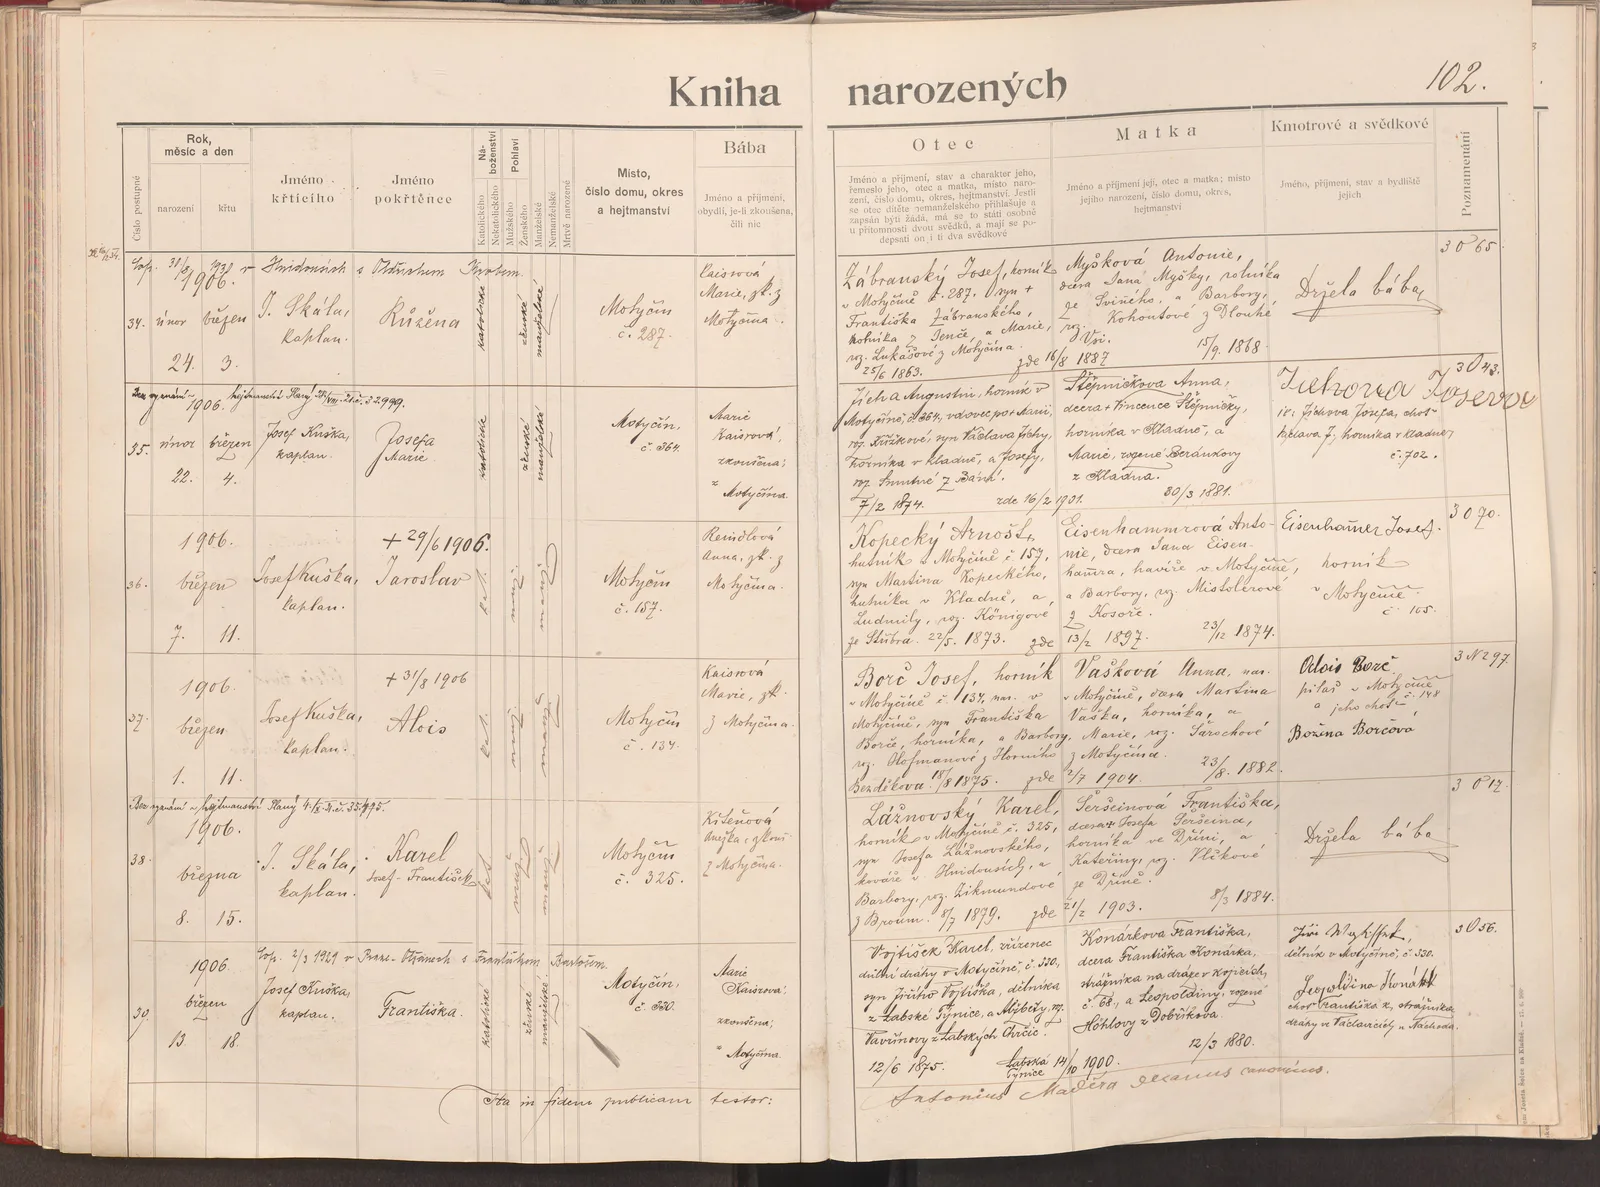 Kniha narozených
102.
Číslo postupné
Rok,
měsíc a den
narození
křtu
Jméno
křtícího
Jméno
pokřtěnce
Ná-
boženství
Katolického
Nekatolického
Pohlaví
Mužského
Ženského
Manželské
Nemanželské
Mrtvě narozené
Místo,
číslo domu, okres
a hejtmanství
Bába
Jméno a příjmení,
obydlí, je-li zkoušena,
čili nic
Otec
Jméno a příjmení, stav a charakter jeho,
řemeslo jeho, otec a matka, místo naro-
zení, číslo domu, okres, hejtmanství. Jestli
se otec dítěte nemanželského přihlašuje a
zapsán býti žádá, má se to státi osobně
u přítomnosti dvou svědků, a mají se po-
depsati on i ti dva svědkové
Matka
Jméno a příjmení její, otec a matka; místo
jejího narození, číslo domu, okres,
hejtmanství
Kmotrové a svědkové
Jméno, příjmení, stav a bydliště
jejich
Poznamenání
1906.
34. únor březen
24. 3.
J. Skála,
kaplan.
Růžena
katolické
ženské
manželské
Motyčín
č. 287.
Kaisrová
Marie, zk. z
Motyčína.
Zábranský Josef, horník
v Motyčíně č. 287. syn +
Františka Zábranského,
rolníka z Jenče, a Marie,
roz. Lukášové z Motyčína.
25/6 1863. zde 16/8 1887
Myšková Antonie,
dcera Jana Myšky, rolníka
ze Sviňého, a Barbory,
roz. Kohoutové z Dlouhé
Vsi.
15/9. 1868
Držela bába
3 O 65
1906.
35. únor březen
22. 4.
Josef Kuška,
kaplan.
Josefa
Marie
katolické
ženské
manželské
Motyčín,
č. 364.
Marie
Kaisrová,
zkoušena;
z Motyčína.
Jícha Augustin, horník v
Motyčíně, č. 364, vdovec po Marii,
syn Václava Jíchy,
horníka v Kladně, a Josefy,
roz. Smutné z Bání.
7/2 1874. zde 16/2 1901.
Štěpničkova Anna,
dcera Vincence Štěpničky,
horníka v Kladně, a
Marie, rozené Beránkovy
z Kladna.
30/3 1881.
Jichova Josefa
Jíchova Josefa, choť
Václava J., horníka v Kladně,
č. 702.
3 O 43.
1906.
36. březen
7. 11.
Josef Kuška,
kaplan.
+ 29/6 1906.
Jaroslav
kat.
muž.
manž.
Motyčín
č. 157.
Reindlová
Anna, zk. z
Motyčína.
Kopecký Arnošt,
hutník v Motyčíně č 157,
syn Martina Kopeckého,
hutníka v Kladně, a
Ludmily, roz. Königové
ze Stěbra. 22/5. 1873. zde 13/2 1897.
Eisenhammrová Anto-
nie, dcera Jana Eisen-
hamra, havíře v Motyčíně,
a Barbory, roz. Mistolerové
z Kosoře.
23/12 1874.
Eisenhamer Josef.
horník
v Motyčíně
č 165
3 O 70.
1906
37. březen
1. 11.
Josef Kuška,
kaplan.
+ 31/8 1906
Alois
kat.
muž.
manž.
Motyčín
č. 134.
Kaisrová
Marie, zk.
z Motyčína.
Borč Josef, horník
v Motyčíně č 134, nar. v
Motyčíně, syn Františka
Borče, horníka, a Barbory,
roz. Hofmanové z Horního
Bezděkova. 18/8 1875. zde 2/7 1904.
Vašková Anna, nar.
v Motyčíně, dcera Martina
Vaška, horníka, a
Marie, roz. Šárochové
z Motyčína.
23/8. 1882.
Alois Borč
v Motyčíně
č. 148
a jeho choť
Božena Borčová
3 N 297.
1906.
38. března
8. 15.
J. Skála,
kaplan.
Karel
Josef - František
kat.
muž.
manž.
Motyčín
č. 325.
z Motyčína.
Lážnovský Karel,
horník v Motyčíně č. 325,
syn Josefa Lážnovského,
kováře v Hnidousích, a
Barbory, roz. Zikmundové
z Broum. 8/7 1879. zde 21/2 1903.
Seršeinová Františka,
dcera Josefa Seršeina,
horníka ve Dříni, a
Kateřiny, roz. Vlškové
ze Dříně.
8/3 1884.
Držela bába
3 O 17
1906
březen
13 18.
Josef Kuška,
kaplan.
Františka.
katolické
ženské
manželské
Motyčín,
č. 330.
Marie
Kaisrova,
zkoušena;
z Motyčína.
Vojtíšek Karel, zřízenec
důlní dráhy v Motyčíně, č. 330,
syn Jiřího Vojtíška, dělníka
z Labské Týnice, a Alžběty, roz.
Vavřinovy z Labských Chrčic.
12/6 1875. Labská Týnice 14/10 1900.
Konárkova Františka,
dcera Františka Konárka,
strážníka na dráze v Kojicích,
č 68, a Leopoldiny, rozené
Höhlovy z Dobříkova.
12/3 1880.
dělník v Motyčíně, č. 330.
Leopoldina Konárk
choť Františka K., strážníka
dráhy
3 O 56.
Ita in fidem publicam testor:
Antonius Maděra decanus canonicus.